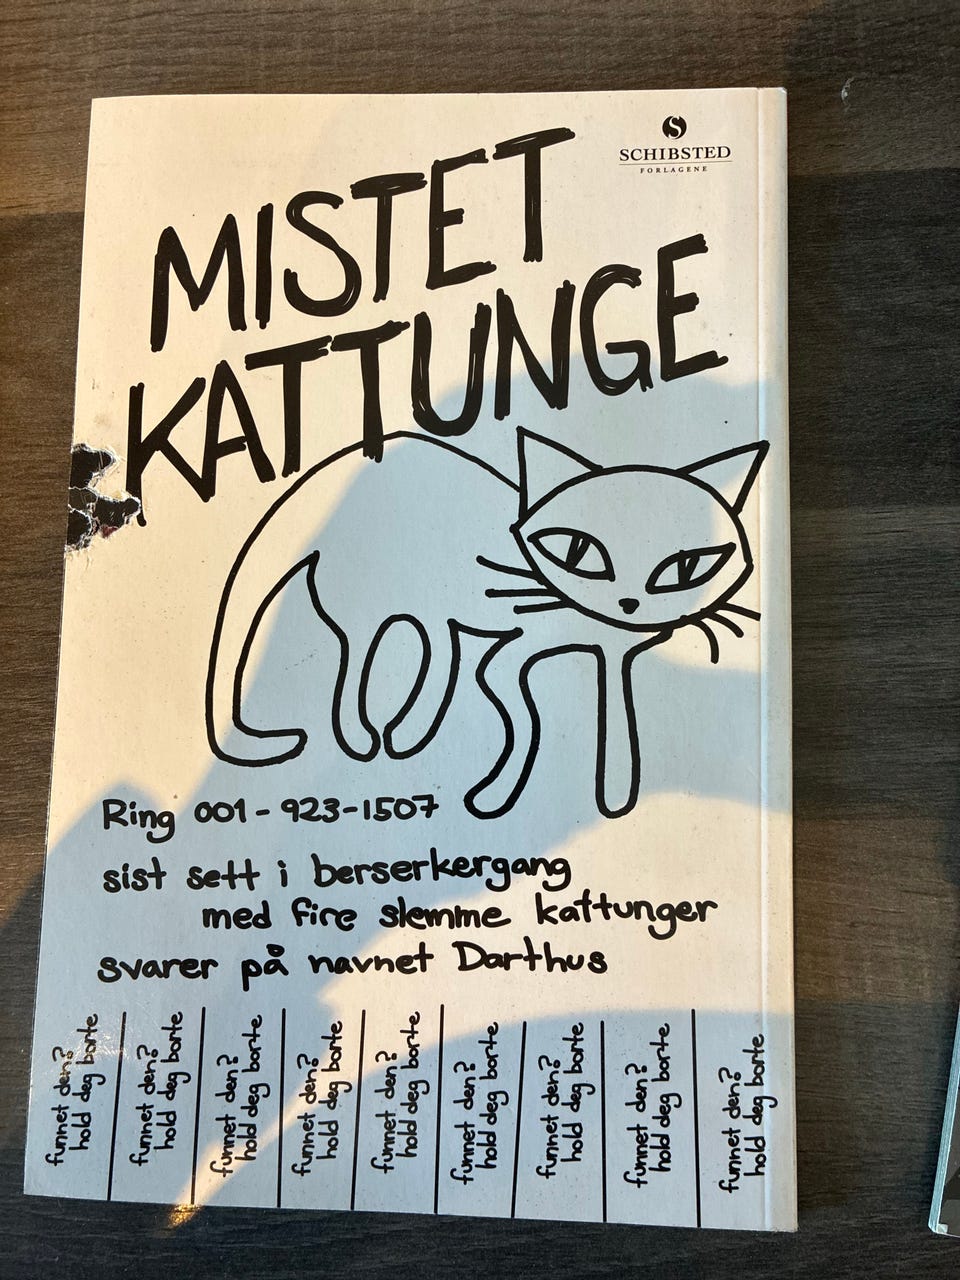 SCHIBSTED
FORLAGENE
MISTET
KATTUNGE
Ring 001-923-1507
sist sett i berserkergang
med fire slemme kattunger
svarer på navnet Darthus
funnet den?
hold deg borte
funnet den?
hold deg borte
funnet den?
hold deg borte
funnet den?
hold deg borte
funnet den?
hold deg borte
funnet den?
hold deg borte
funnet den?
hold deg borte
funnet den?
hold deg borte
funnet den?
hold deg borte